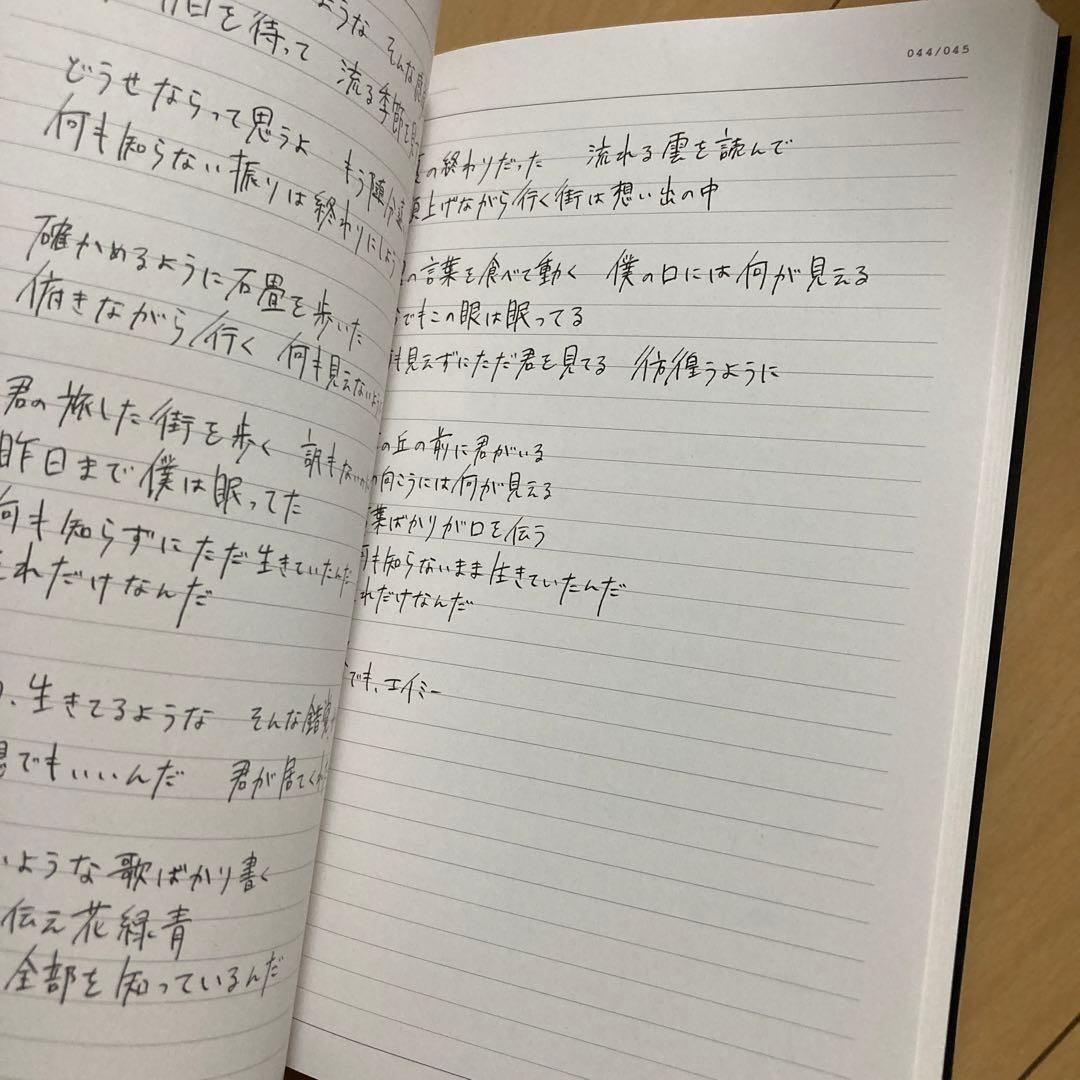 ような そんな
日を待って 流る季節を
どうせならって思うよ もう随分
何も知らない振りは終わりにしよう
確かめるように石畳を歩いた
俯きながら行く 何も見えないように
君の旅した街を歩く 訳もないのに
昨日まで僕は眠ってた
何も知らずにただ生きていたんだ
それだけなんだ
生きてるような そんな錯覚
でもいいんだ 君が居てくれ
ような歌ばかり書く
伝え花緑青
全部を知っているんだ
044/045
の終わりだった 流れる雲を読んで
上げながら行く街は想い出の中
の言葉を食べて動く 僕の口には何が見える
でもこの眼は眠ってる
も見えずにただ君を見てる 彷徨うように
の丘の前に君がいる
の向こうには何が見える
葉ばかりが口を伝う
何も知らないまま生きていたんだ
れだけなんだ
でも、エイミー